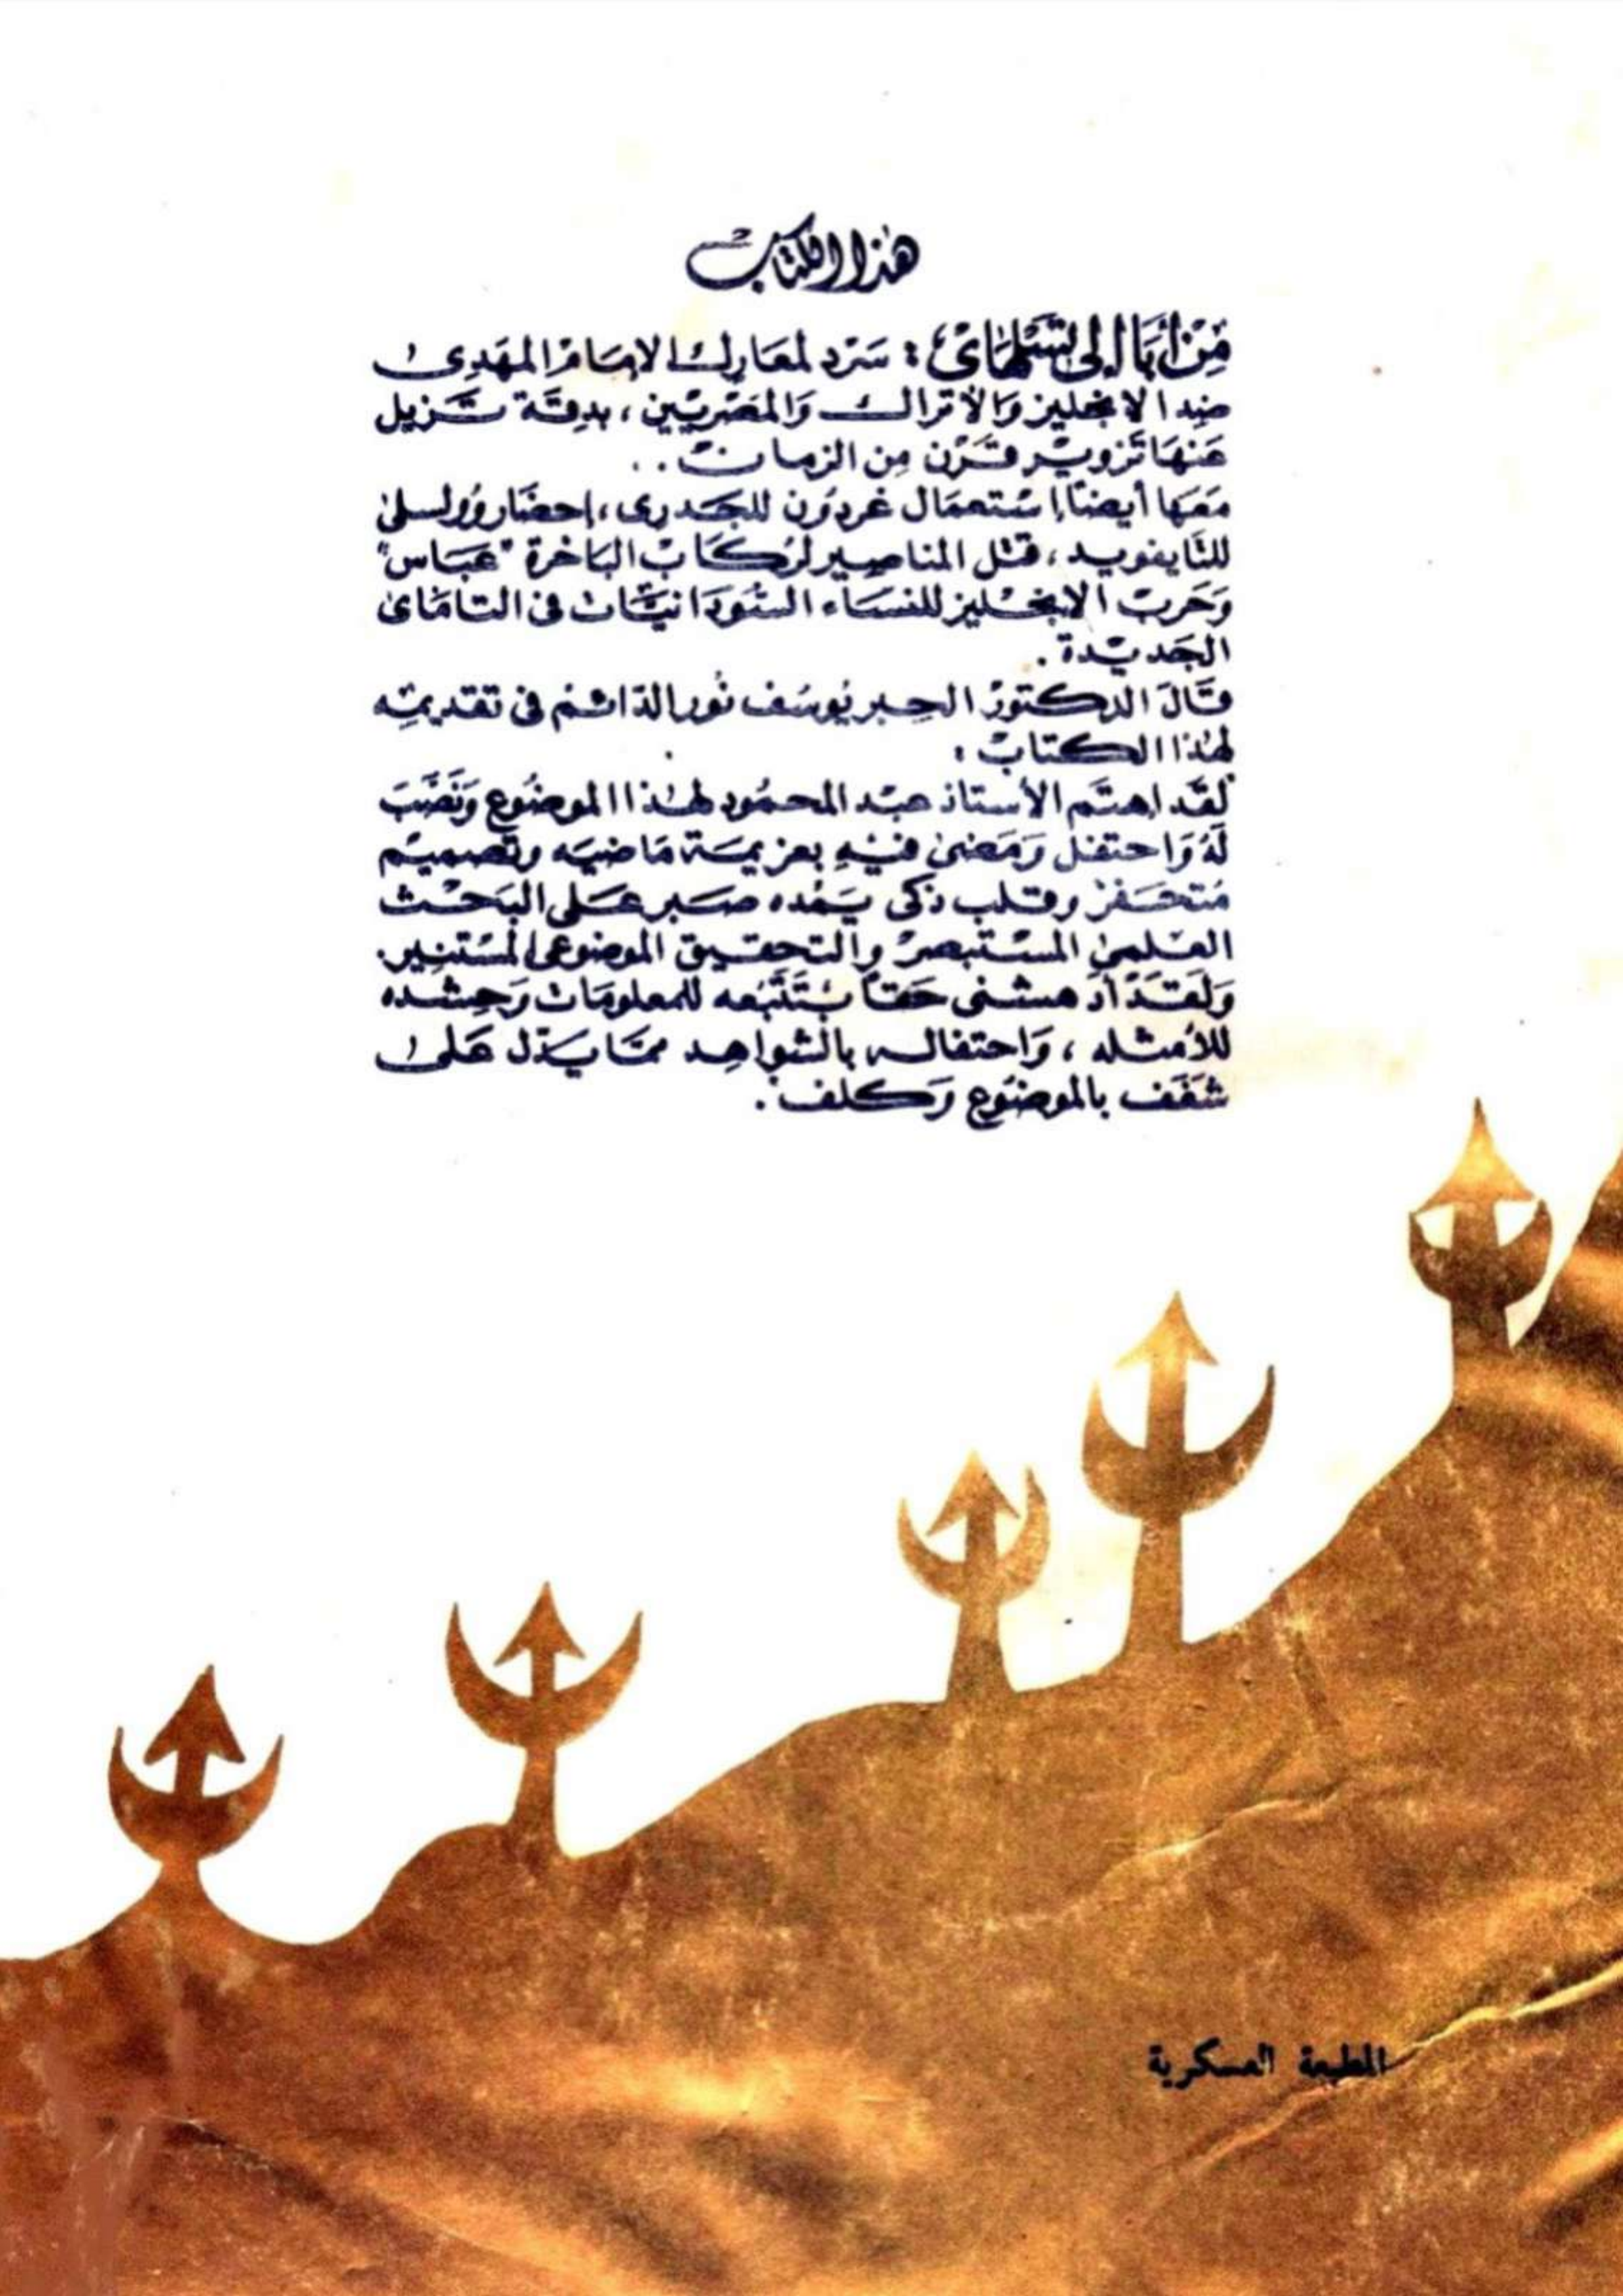 هذا الكتاب
من أبا إلى تسلهاى : سرد لمعارك الامام المهدى
ضد الانجليز والأتراك والمصريين ، بدقة تزيل
عنها تزوير قرن من الزمان . .
معها أيضا استعمال غردون للجدرى ، احضار وولسلى
للتايفويد ، قتل المناصير لركاب الباخرة "عباس"
وحرب الانجليز للنساء السودانيات فى التاماى
الجديدة .
قال الدكتور الحبر يوسف نور الدائم فى تقديمه
لهذا الكتاب :
لقد اهتم الأستاذ عبد المحمود لهذا الموضوع ونصب
له واحتفل ومضى فيه بعزيمة ماضيه وتصميم
متحفز وقلب ذكى يمده صبر على البحث
العلمى المستبصر والتحقيق الموضوعى المستنير.
ولقد أدهشنى حقا بتتبعه للمعلومات وحشده
للأمثله ، واحتفاله بالشواهد مما يدل على
شغف بالموضوع وكلف .
المطبعة العسكرية